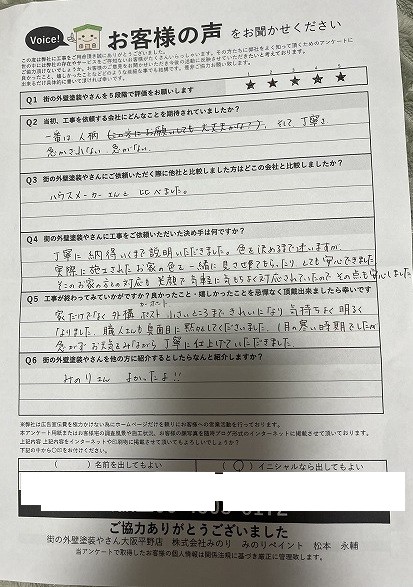 Voice!
お客様の声 をお聞かせください
この度は弊社に工事をご用命頂き誠にありがとうございました。
Q1 街の外壁塗装やさんを5段階で評価をお願いします
1 2 3 4 5
★ ★ ★ ★ ★
Q2 当初、工事を依頼する会社にどんなことを期待されていましたか？
一番は人柄(この方にお願いしても大丈夫かな？)、そして丁寧さ
急かされない 急がない
Q3 街の外壁塗装やさんにご依頼いただく際に他社と比較しました方はどこの会社と比較しましたか？
ハウスメーカーさんと比べました。
Q4 街の外壁塗装やさんに工事をご依頼いただいた決め手は何ですか？
丁寧に納得いくまで説明いただきました。色を決めるまで迷いますが、
実際に施工されたお家の色を一緒に見させてもらったり、とても安心できました
そこのお家の方との対応も笑顔で気軽に気もちよく対応されていたので その点も安心しました
Q5 工事が終わってみていかがですか？良かったこと・嬉しかったことを忌憚なく頂戴出来ましたら幸いです
家だけでなく外構 ポスト カーポート 小さいところまできれいになり気持ちよく明るく
なりました。職人さんも真面目に黙々としてくださいました。1月の寒い時期でしたが
急がずお天気みながら丁寧に仕上げていただきました。
Q6 街の外壁塗装やさんを他の方に紹介するとしたらなんと紹介しますか？
みのりさん よかったよ!!
※弊社は広告宣伝費を極力かけない為にホームページだけを頼りにお客様への営業活動を行っております。
本アンケート用紙またはお客様宅の調査風景や施工状況、お客様の顔写真を随時ブログ形式のインターネットに掲載させて頂いております。
上記内容 上記内容をインターネットや印刷物に掲載させて頂いてもよろしいでしょうか？
下記の中から〇印をお付けください。
( ) 名前を出してもよい
( 〇 ) イニシャルなら出してもよい
ご協力ありがとうございました
街の外壁塗装やさん大阪平野店 株式会社みのり みのりペイント 松本 永輔
当アンケートで取得したお客様の個人情報は関係法規に基づき厳正に管理致します。